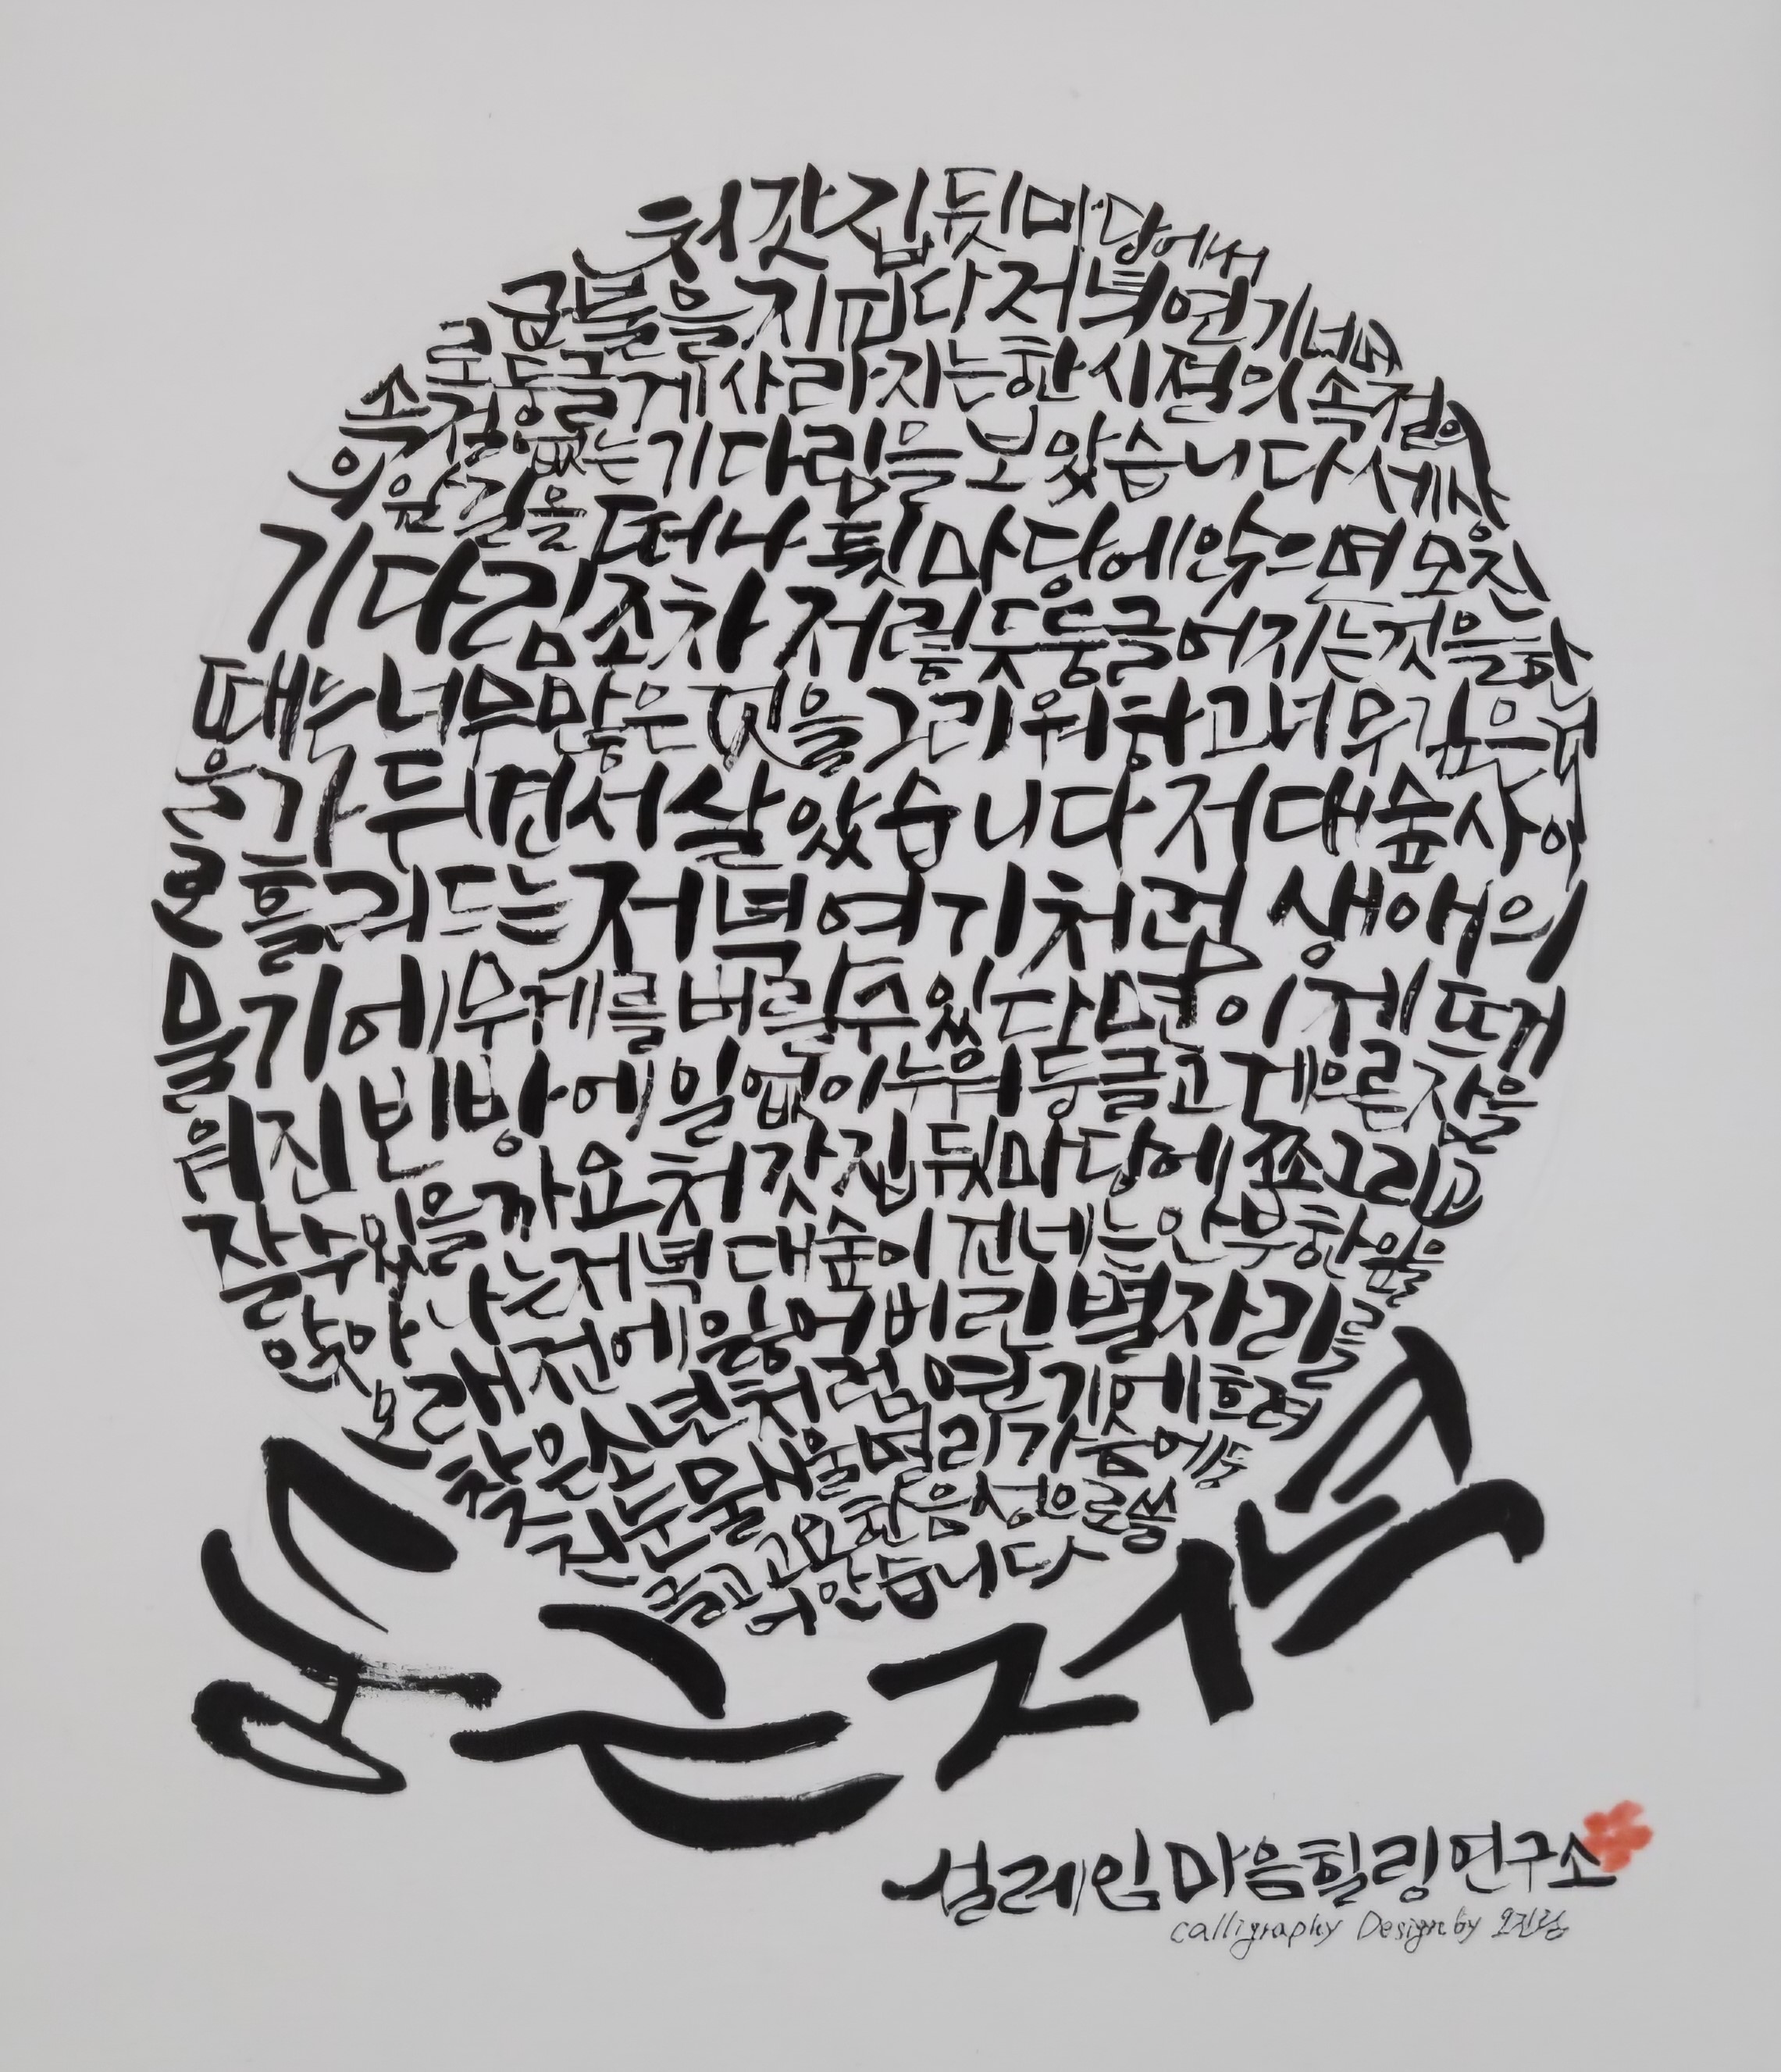 처갓집 뒷마당에서
군불을 지핀다 저녁연기 너머
로 둥글게 사라지는 한 시절의 속절
속절없는 기다림을 보았습니다 세상
의 길을 떠나 뒷마당에 앉으며 모진
기다림조차 저렇듯 둥글어지는 것을 한
때는 너무 많은 것을 그리워하고 너무 깊은
을 가두면서 살았습니다 저 대숲 사이
로 흘러드는 저녁 연기처럼 생애의
물기에 무게를 버릴 수 있다면 이제
워진 빈방에 일없이 누워 둥글고 게으른 잠을
잘 수 있을까요 처갓집 뒷마당에 쪼그리고
앉아 나는 저녁 대숲이 건네는 안부 한
오래전에 잃어버린 별자리를
찾은 소년처럼 연기 흐려
진 눈물 멀리 가슴에 둥
글고 고요한 음성으로 쓸
어안습니다
둥근 저녁
설레임 마음힐링연구소
calligraphy Design by